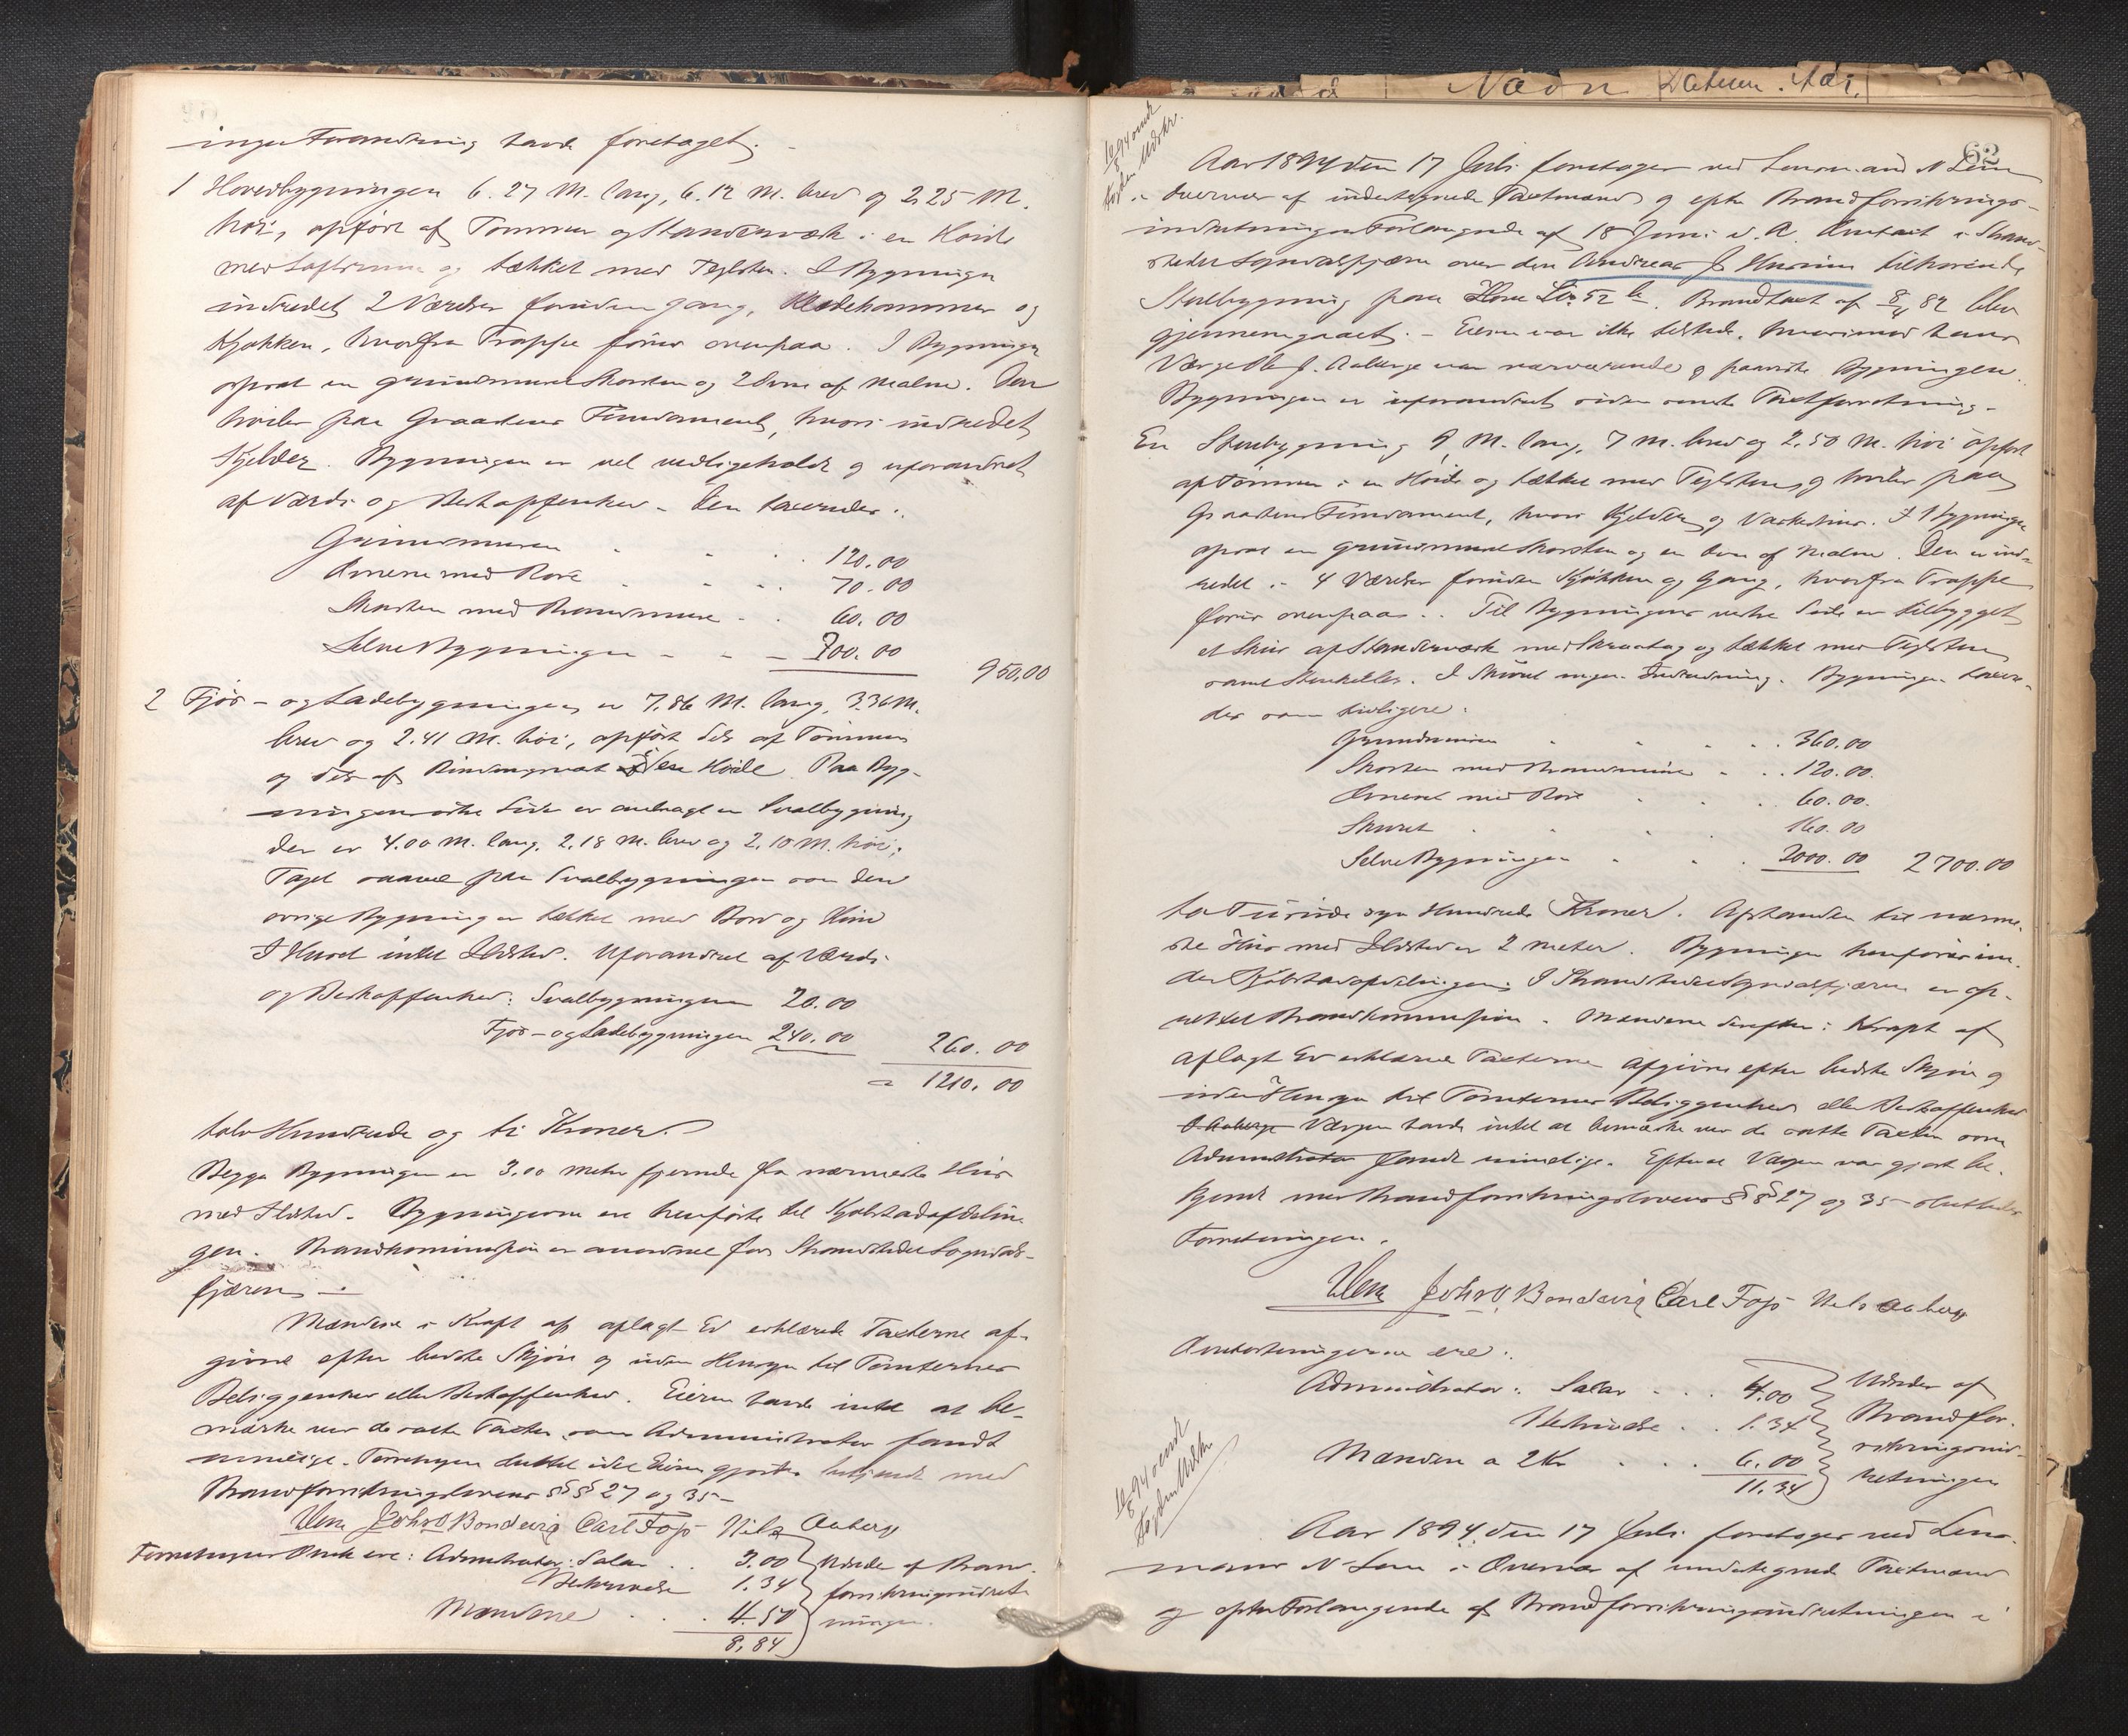 ingen Forandring havde foretaget. -
1 Hovedbygningen 6.27 M. lang, 6.12 M. bred og 2.25 M.
høi, opført af Tømmer og Standerværk i en Høide
med Loftsrum og tækket med Teglsten. I Bygningen
indredet 2 Værelser foruden Gang, Klædekammer og
Kjøkken, hvorfra Trappe fører ovenpaa. I Bygningen
opsat en grundmuret Skorsten og 2 Ovne af Malm. Den
hviler paa Graastens Fundament, hvori indredet
Kjelder. Bygningen er vel vedligeholdt og uforandret
af Værdi og Beskaffenhed - Den taxeredes:
Grundmuren . . . 120.00
Ovnene med Rør . . . 70.00
Skorsten med Brandmure . . 60.00
Selve Bygningen - - - 700.00 950.00
2 Fjøs- og Ladebygningen er 7.86 M. lang, 3.36 M.
bred og 2.41 M. høi, opført dels af Tømmer
og dels af Bindingsværk i en Høide. Paa Byg-
ningens Side er anbragt en Svalbygning
der er 4.00 M. lang, 2.18 M. bred og 2.10 M. høi;
Taget saavel paa Svalbygningen som den
øvrige Bygning er tækket med Bord og
I Huset intet Ildsted. Uforandret af Værdi
og Beskaffenhed: Svalbygningen 20.00
Fjøs- og Ladebygningen 240.00 260.00
= 1210.00
tolv Hundrede og ti Kroner.
Begge Bygninger er 3.00 Meter fjernede fra nærmeste Hus
med Ildsted. Bygningerne ere henførte til Kjøbstadafdelin-
gen. Brandkommission er anordnet for Strandstedet Sogndals-
fjæren. -
Mændene i Kraft af aflagt Ed erklærede Taxterne af-
givne efter bedste Skjøn og uden Hensyn til Tomternes
Beliggenhed eller Beskaffenhed. Eieren havde intet at be-
mærke ved de satte Taxter, som Administrator fandt
rimelige. Forretningen sluttet idet Eieren gjordes bekjendt med
Brandforsikringslovens §§ 27 og 35 -
NLem Johs O Bondevig Carl Foss Nils Aaberge
Forretningens Omk. ere: Administrator: Salær . . 3.00 Udrede af Brand-
Beskrivelse 1.34 forsikringsindret-
Mændene . . . 4.50 ningen.
8.84
62
Nævn Datum. Aar.
18/8 94 sendt
Aar 1894 den 17 Juli foretoges ved Lensmand N Lem
i Overvær af undertegnede Taxtmænd og efter Brandforsikrings-
indretningens Forlangende af 18 Juni d. A. Omtaxt i Strand-
stedet Sogndalsfjæren over den Andreas J. tilhørende
Stuebygning paa Lno. 52 b. Brandtaxt af 8/4 82 blev
gjennemgaaet. - Eieren var ikke tilstede, hvorimod hans
Værge J. Aaberge var nærværende og paaviste Bygningen.
Bygningen er uforandret siden sidste Taxtforretning.
En Stuebygning 9 M. lang, 7 M. bred og 2.50 M. høi opført
af Tømmer i en Høide og tækket med Teglsten, og hviler paa
Graastens Fundament, hvori Kjelder og Vaskehus. I Bygningen
opsat en grundmuret Skorsten og en Ovn af Malm. Den er ind-
redet i 4 Værelser foruden Kjøkken og Gang, hvorfra Trappe
fører ovenpaa. Til Bygningens vestre Side er tilbygget
et Skur af Standerværk med Skraatag og tækket med Teglsten
samt . I Skuret ingen Indredning. Bygningen taxere-
des som tidligere:
Grundmuren . . . . 360.00
Skorsten med Brandmure . . 120.00
Ovnen med Rør . . . 60.00.
Skuret . . . 160.00
Selve Bygningen . . . 2000.00 2700.00
to Tusinde syv Hundrede Kroner. Afstanden til nærme-
ste Hus med Ildsted er 2 Meter. Bygningen henføres un-
der Kjøbstadafdelingen. I Strandstedet Sogndalsfjæren er op-
rettet Brandkommission. Mændene derefter i Kraft af
aflagt Ed erklærede Taxterne afgivne efter bedste Skjøn og
uden Hensyn til Tomternes Beliggenhed eller Beskaffenhed
Værgen havde intet at bemærke ved de satte Taxter som
Administrator fandt rimelige. Efterat Værgen var gjort be-
kjendt med Brandforsikringslovens §§ 27 og 35 sluttedes
Forretningen.
NLem Johs O Bondevig Carl Foss Nils Aaberge
Omkostningerne ere:
Administrator: Salær . . . 4.00 Udredes af
Beskrivelse . . 1.34 Brandfor-
Mændene a 2 Kr . . . 6.00 sikringsind-
11.34 retningen
18/8 94 sendt
Aar 1894, den 17 Juli foretoges ved Lens-
mand N Lem i Overvær af undertegnede Taxtmænd
og efter Forlangende af Brandforsikringsindretningen i